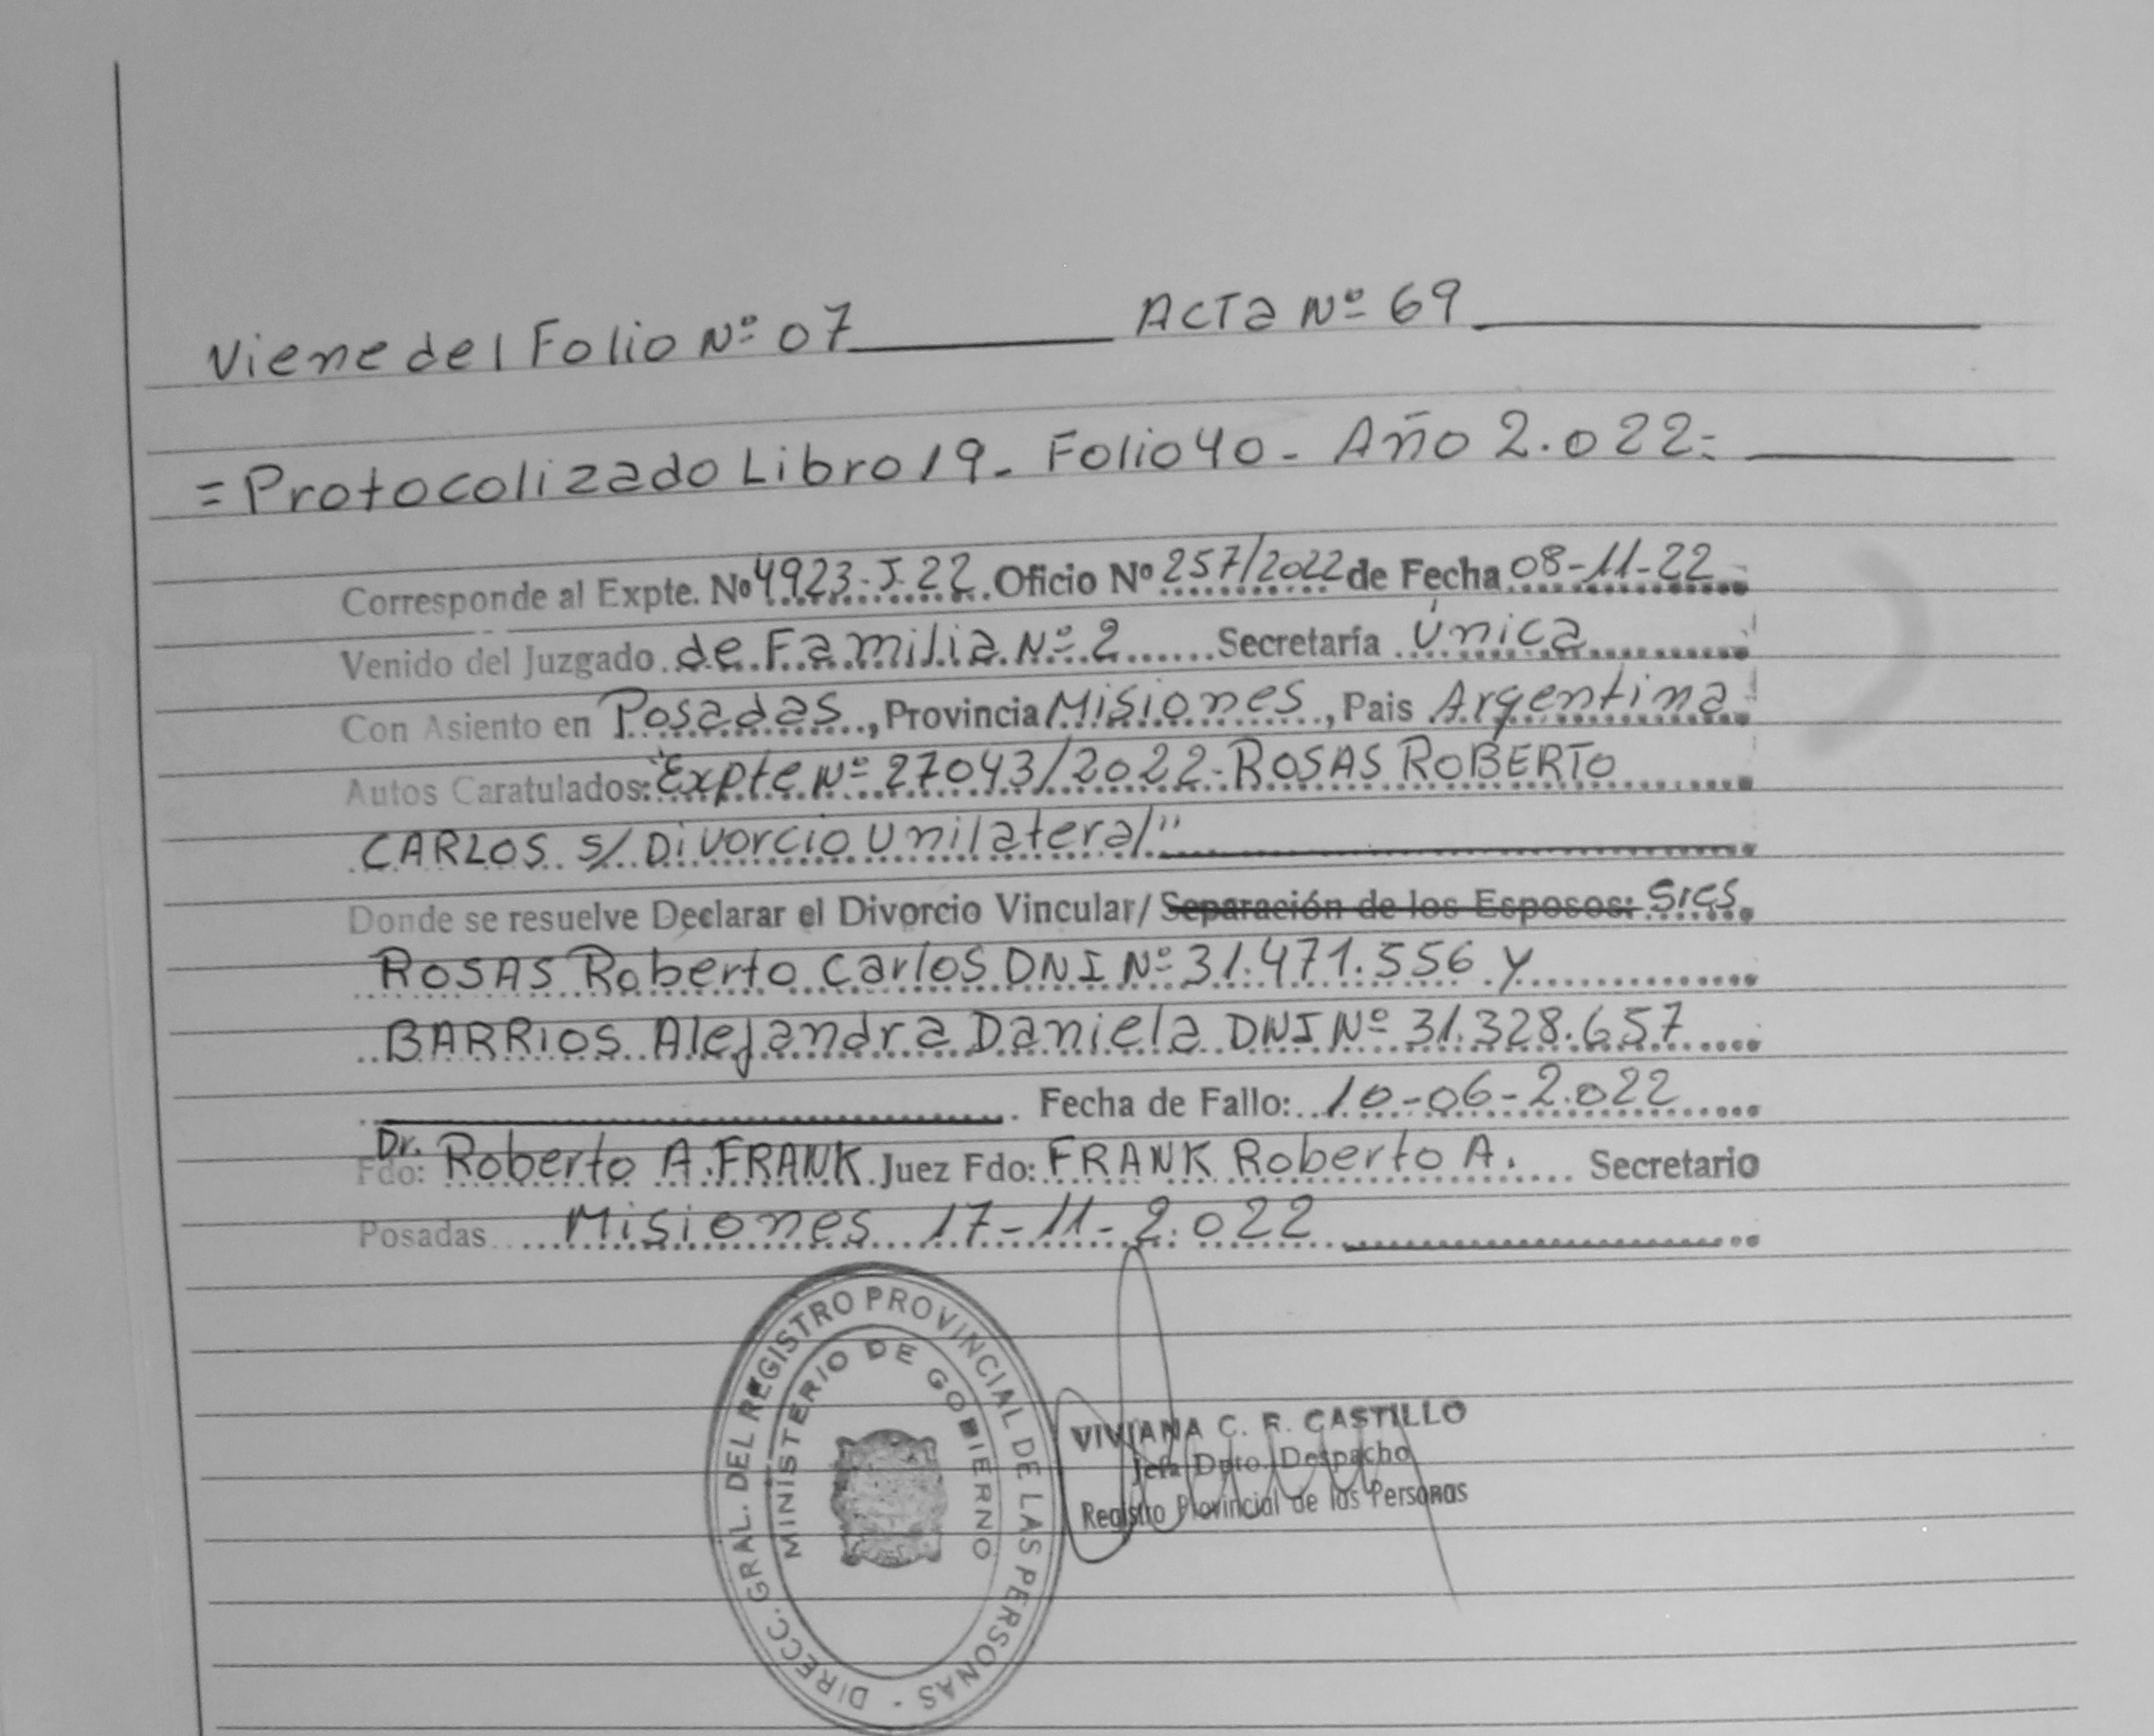 Viene del Folio Nº 07 Acta Nº 69
= Protocolizado Libro 19_ Folio 40- Año 2.022=
Corresponde al Expte. Nº 4923-J-22. Oficio Nº 257/2022 de Fecha 08-11-22
Venido del Juzgado de Familia Nº 2 Secretaría Única
Con Asiento en Posadas, Provincia Misiones, Pais Argentina
Autos Caratulados: "Expte Nº 27043/2022-ROSAS ROBERTO
CARLOS S/ Divorcio Unilateral"
Donde se resuelve Declarar el Divorcio Vincular/ Separación de los Esposos: Sres
ROSAS Roberto Carlos DNI Nº 31.471.556 y
BARRIOS Alejandra Daniela DNI Nº 31.328.657
Fecha de Fallo: 10-06-2.022
Fdo: Dr. Roberto A. FRANK Juez Fdo: FRANK Roberto A. Secretario
Posadas Misiones 17-11-2.022
DIRECC. GRAL. DEL REGISTRO PROVINCIAL DE LAS PERSONAS -
MINISTERIO DE GOBIERNO
VIVIANA C. R. CASTILLO
Jefa Dpto. Despacho
Registro Provincial de las Personas